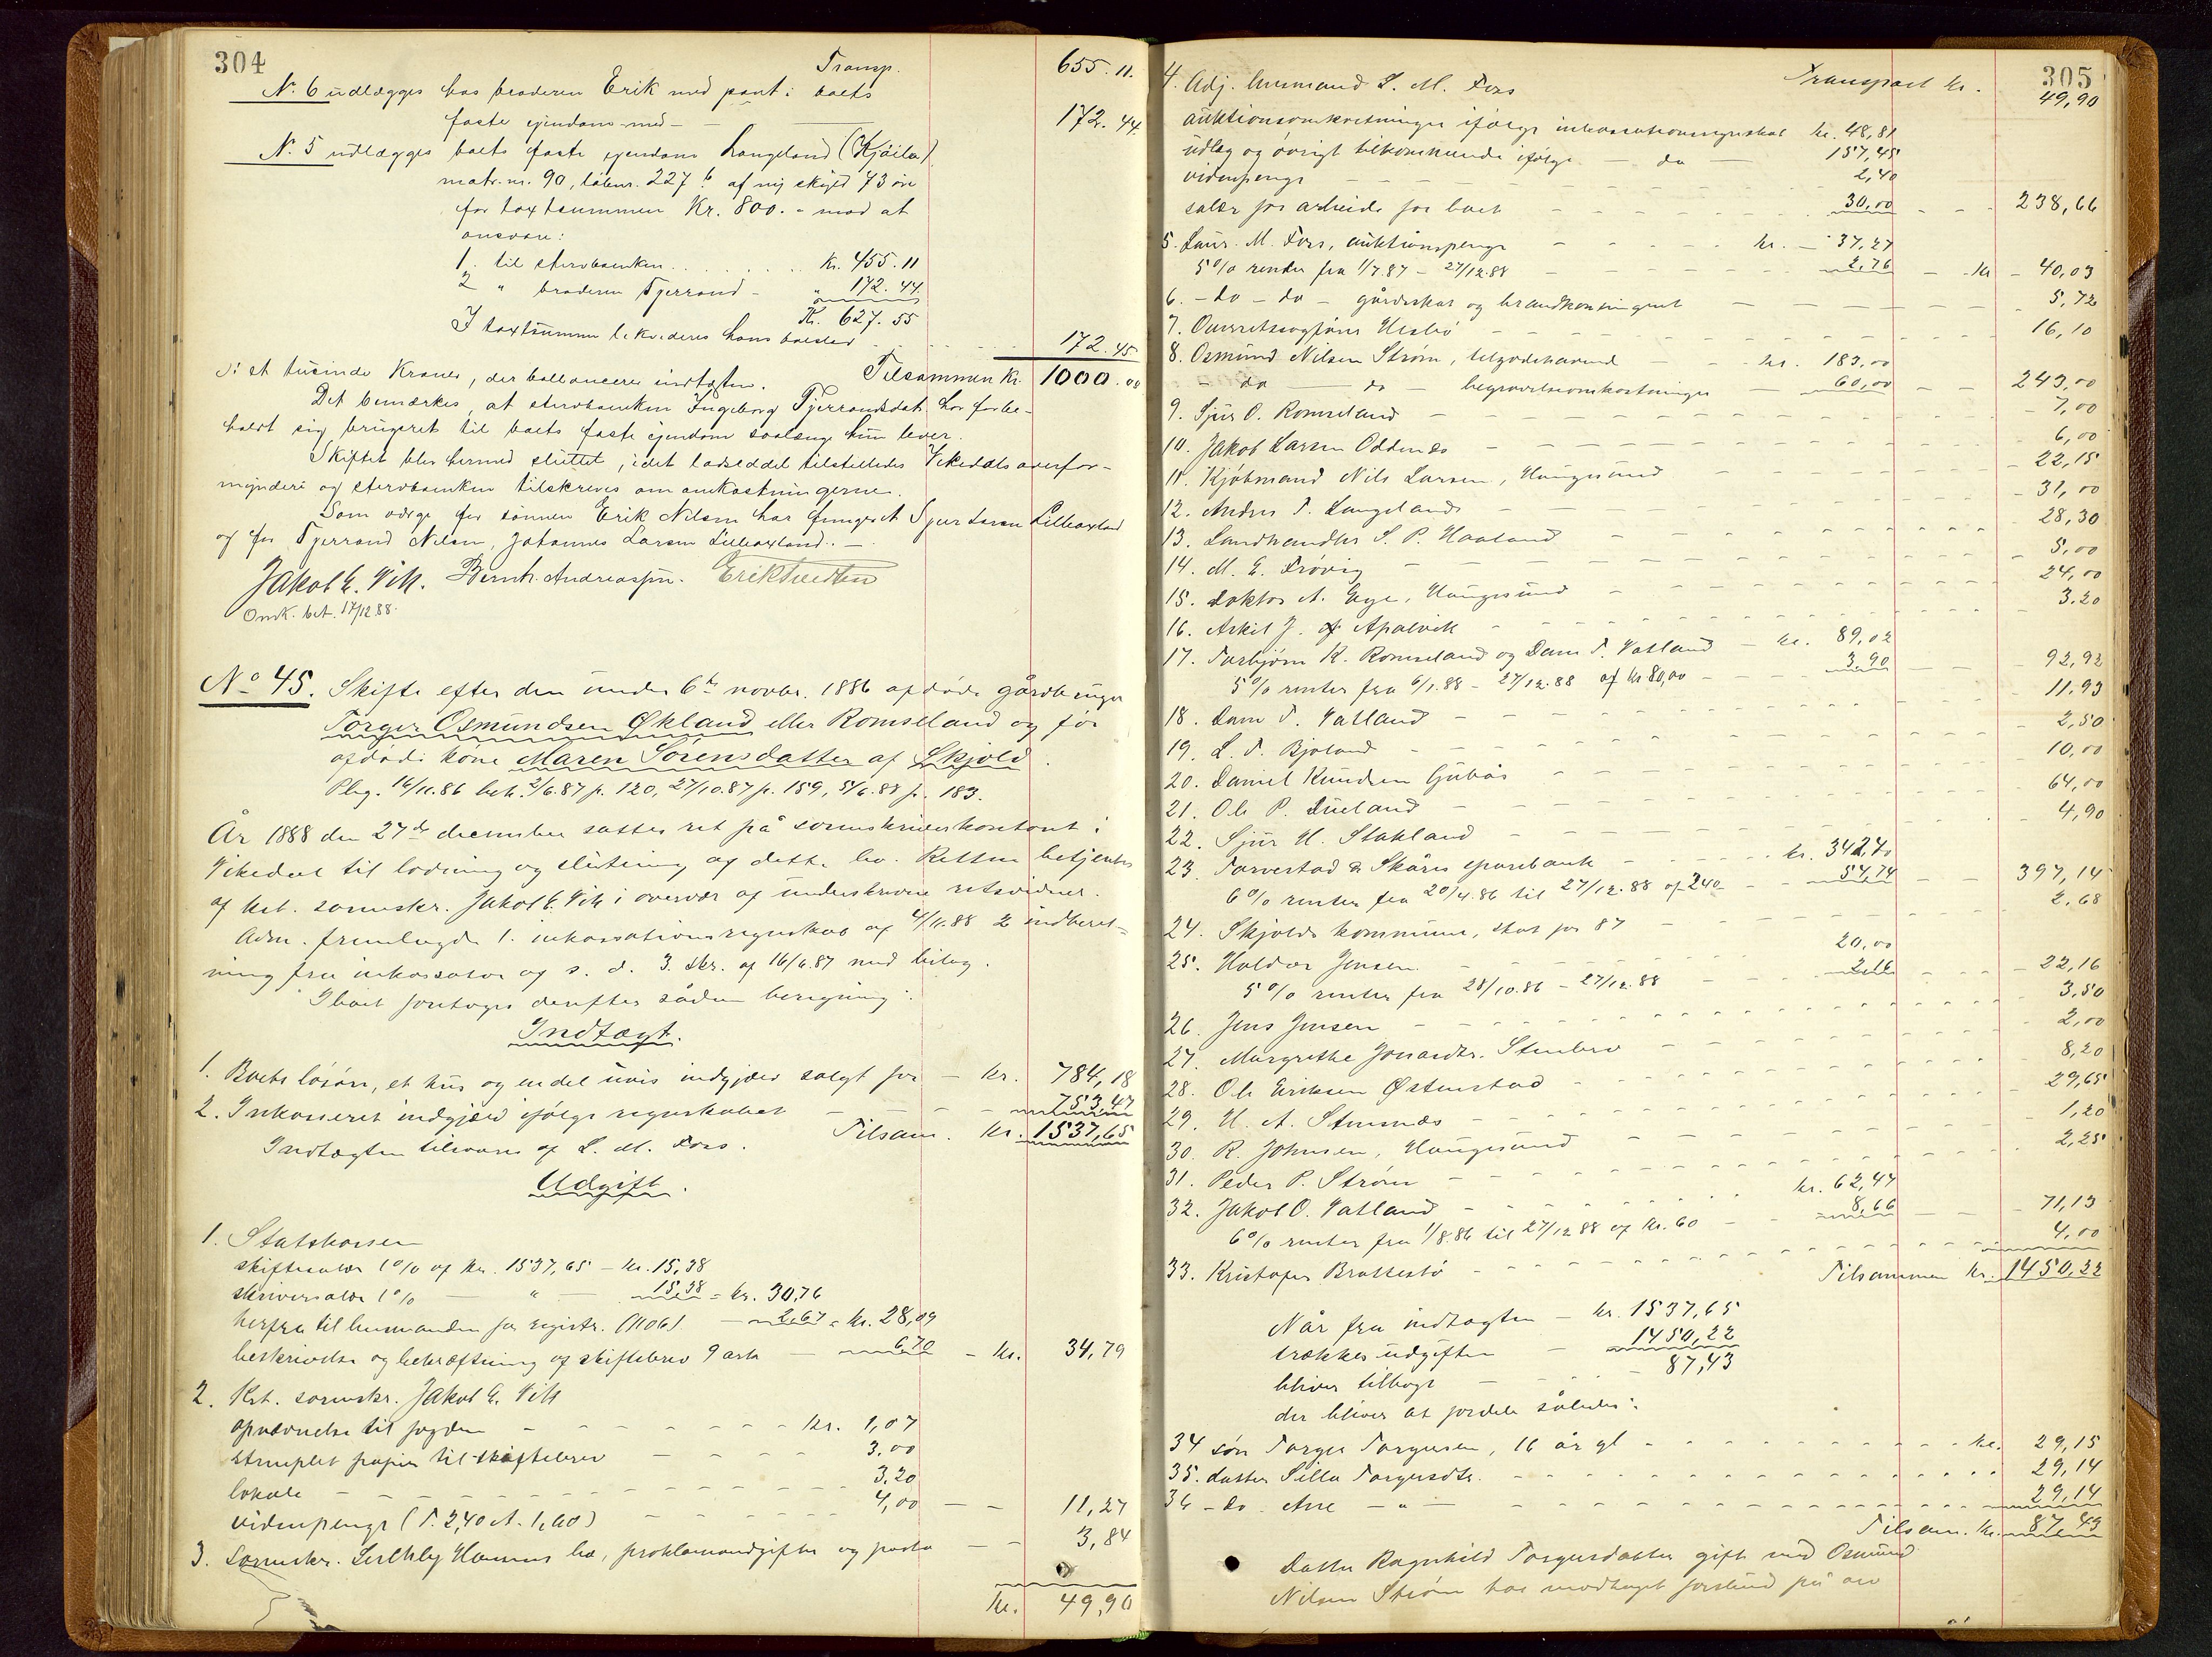 304
Transp. 655.11.
No. 6 udlægges hos broderen Erik mod pant i boets
faste ejendom med — 172.44
No. 5 udlægges boets faste ejendom Langeland (Kjöila)
matr. nr. 90, löbenr. 227 b af ny skyld 73 öre
for taxtsummen Kr. 800. - mod at
ansvare:
1. til stervboenken . . . . . . . Kr. 455.11
2 " broderen Tjerrand - " 172.44
Kr. 627.55
I taxtsummen likvideres hans boeslod 172.45
ɔ: et tusinde Kroner, der ballancerer indtægten. Tilsammen Kr. 1000.00
Det bemærkes, at stervboenken Ingeborg Tjerrandsdat. har forbe-
holdt sig brugsret til boets faste ejendom saalænge hun lever.
Skiftet blev hermed sluttet, idet lodseddel tilstilledes Vikedals overfor-
mynderi og stervboenken tilskrives om omkostningerne.
Som værge for sönnen Erik Nilsen har fungeret Sjur Larsen Lilleaxland
og for Tjerrand Nilsen, Johannes Larsen Lilleaxland. —
Jakob E. Vik. Bernh. Andreassen. Erik Tvedten
Omk. bet. 17/12 88.
No 45. Skifte efter den under 6te novbr. 1886 afdöde gårdbruger
Torger Osmundsen Økland eller Romseland og før
afdöde kone Maren Sörensdatter af Skjold.
Plig. 16/11.86 beh. 2/6.87 p. 120, 27/10.87 p. 159, 5/6.88 p. 183.
År 1888 den 27de december sattes ret på sorenskriverkontoret i
Vikedal til lodning og slutning af dette bo. Retten betjentes
af kst. sorenskr. Jakob E. Vik i overvær af underskrevne retsvidner.
Adm. fremlagde 1. inkassationsregnskab af 4/11.88 2 indberet-
ning fra inkassator og s. d. 3. skr. af 16/6.87 med bilag.
I boet foretages derefter sådan beregning:
Indtægt.
1. Boets lösöre, et hus og en del uvis indgjæld solgt for — kr. 784,18
2. Inkasseret indgjæld ifölge regnskabet — 753,47
Indtægten tilsvares af L. M. Fors. Tilsam. kr. 1537,65
Udgift.
1. Statskassen
skiftesalær 1 % af kr. 1537,65 — kr. 15,38
skriversalær 1 % — " — 15,38 = kr. 30,76
herfra til lensmanden for registr. (1106). — 2,67 = kr. 28,09
beskrivelse og bekræftning af skiftebrev 9 ark — 6,70 — kr. 34,79
2. Kst. sorenskr. Jakob E. Vik
opnævnelse til fogden — kr. 1,07
stemplet papir til skiftebrev — 3,00
lokale — 3,20
vidnepenge (T. 2,40 A. 1,60) — 4,00 — 11,27
3. Sorenskr. bo, proklamaudgifter og porto — 3,84
Kr. 49,90
305
Transport kr. 49,90
4. Adj. lensmand L. M. Fors
auktionsomkostninger ifölge inkassationsregnskab kr. 48,81
udlæg og övrigt tilkommende ifölge — do — 157,45
vidnepenge 2,40
salær for arbeide for boet 30,00 238,66
5. Laur. M. Fors, auktionspenge kr. — 37,27
5 % renter fra 1/7.87 – 27/12.88 2,76 kr — 40,03
6. — do — do — gårdsskat og brandkontingent 5,72
7. Overretssagförer 16,10
8. Osmund Nilsen Strøm, tilgodehavende kr. 183,00
— do — do begravelsesomkostninger 60,00 243,00
9. Sjur O. Romseland 7,00
10. Jakob Larsen Oddenes 6,00
11. Kjöbmand Nils Larsen, Haugesund 22,15
12. Anders T. Langeland 31,00
13. Landhandler S. P. Haaland 28,30
14. M. E. Frøvig 5,00
15. Doktor A. Eger, Haugesund 24,00
16. Askil J. Apalvik 3.20
17. Torbjörn K. Romseland og Dam T. Vatland — kr. 89,02
5 % renter fra 6/1.88 – 27/12.88 af kr 80,00 3,90 92,92
18. Dam T. Vatland 11.93
19. L. T. Bjoland 2,50
20. Daniel Knudsen 10,00
21. Ole P. Lueland 64,00
22. Sjur H. Stakland 4,90
23. Torvestad & Skåres sparebank kr. 342,40
6 % renter fra 20/4.86 til 27/12.88 af 340 54,74 397,14
24. Skjolds kommune, skat for 87 2.68
25. Haldor Jensen 20,00
5 % renter fra 28/10.86 – 27/12.88 2,16 22,16
26. Jens Jensen 3,50
27. Margrethe Jonasdtr. Stenbro 2,00
28. Ole Eriksen Østenstad 8,20
29. H. A. Stensnes 29,65
30. R. Johnsen, Haugesund 1,20
31. Peder P. Strøm 2,25
32. Jakob O. Vatland kr. 62,47
6 % renter fra 1/8.86 til 27/12 88 af kr. 60 8,66 71,13
33. Kristofer Brattestö 4,00
Tilsammen kr. 1450,22
Når fra indtægten — kr. 1537,65
trækkes udgiften — 1450,22
bliver tilbage — 87,43
der bliver at fordele således:
34 sön Torger Torgersen, 16 år gl kr. 29,15
35. datter Silla Torgersdtr. 29,14
36 — do . Ane — " — 29,14
Tilsam. kr. 87,43
Datter Ragnhild Torgersdatter gift med Osmund
Nilsen Strøm har modtaget forskud på arv